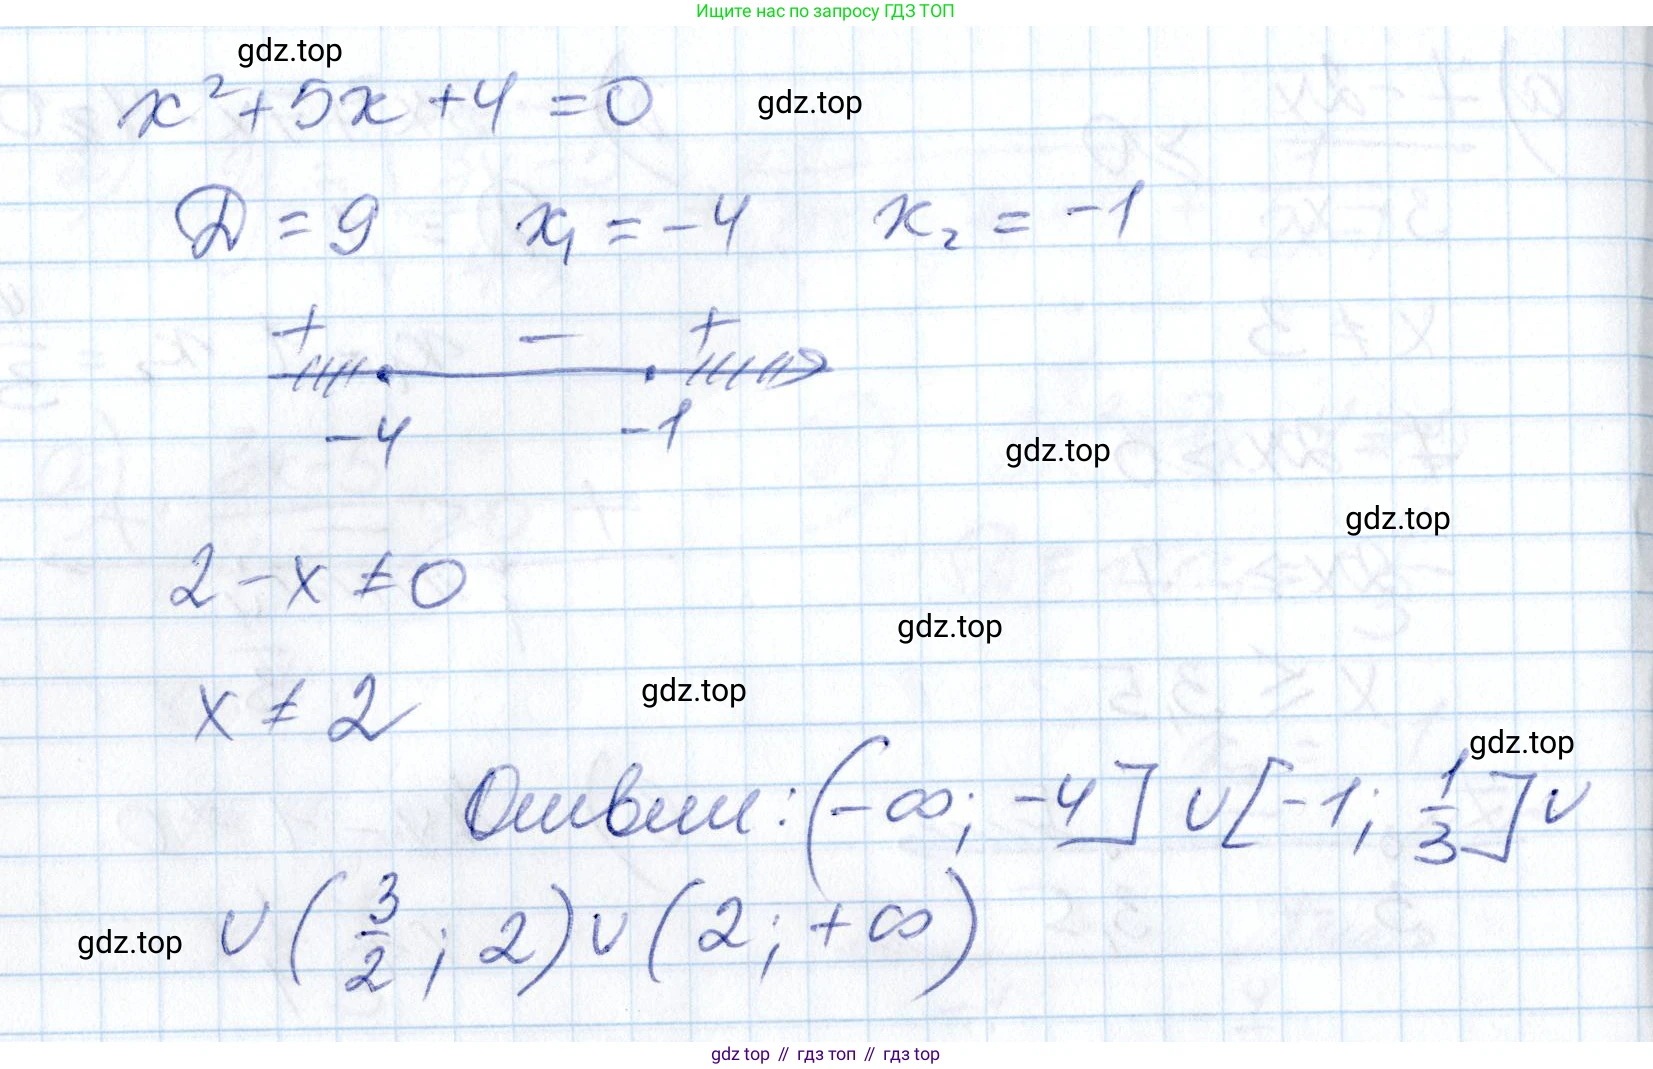 Ищите нас по запросу ГДЗ ТОП
gdz.top
x² + 5x + 4 = 0
gdz.top
D = 9 x₁ = -4 x₂ = -1
+ - +
-4 -1
gdz.top
gdz.top
2 - x ≠ 0
gdz.top
x ≠ 2
gdz.top
gdz.top
Ответ: (-∞; -4] ∪ [-1; 1/3] ∪
∪ (3/2; 2) ∪ (2; +∞)
gdz.top
gdz top // гдз топ // gdz top